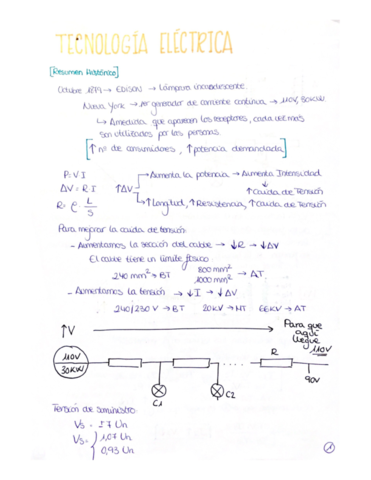 TECNOLOGÍA ELÉCTRICA
[Resumen histórico]
Octubre 1879 → EDISON → Lámpara incandescente.
Nueva York → 1er generador de corriente continua → 110V, 30KW
↳ A medida que aparecen los receptores, cada vez más
son utilizados por las personas.
[↑ nº de consumidores, ↑ potencia demandada]
P = V I
→ Aumenta la potencia → Aumenta Intensidad
↓
ΔV = R I ↑ΔV ↑ Caida de Tensión
R = ρ · L/S ↳ ↑ Longitud, ↑ Resistencia, ↑ Caida de Tensión
Para mejorar la caida de tensión:
- Aumentamos la sección del cable → ↓R → ↓ΔV
El cable tiene un límite físico
240 mm² → BT 800 mm² 1000 mm² → AT.
- Aumentamos la tensión → ↓I → ↓ΔV
240/230 V → BT 20KV → MT 66KV → AT
↑V
Para que
aquí
llegue
110V
R
110V
30KW
90V
C1
C2
Tensión de suministro:
Vs = ±7 Un
Vs = 1,07 Un
0,93 Un
1